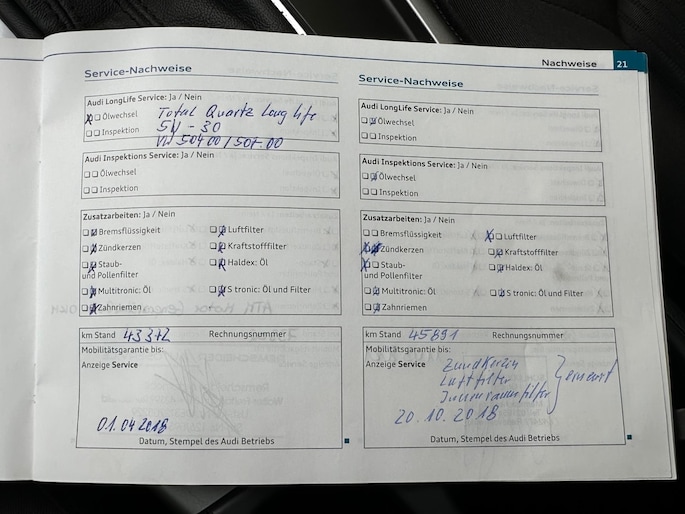 Nachweise 21
Service-Nachweise
Audi LongLife Service: Ja / Nein
Ölwechsel
Inspektion
Total Quartz Long life
5W - 30
VW 504.00 / 507.00
Audi Inspektions Service: Ja / Nein
Ölwechsel
Inspektion
Zusatzarbeiten: Ja / Nein
Bremsflüssigkeit
Luftfilter
Zündkerzen
Kraftstofffilter
Staub-
und Pollenfilter
Haldex: Öl
Multitronic: Öl
S tronic: Öl und Filter
Zahnriemen
km Stand 43372 Rechnungsnummer
Mobilitätsgarantie bis:
Anzeige Service
01.04.2018
Datum, Stempel des Audi Betriebs
Service-Nachweise
Audi LongLife Service: Ja / Nein
Ölwechsel
Inspektion
Audi Inspektions Service: Ja / Nein
Ölwechsel
Inspektion
Zusatzarbeiten: Ja / Nein
Bremsflüssigkeit
Luftfilter
Zündkerzen
Kraftstofffilter
Staub-
und Pollenfilter
Haldex: Öl
Multitronic: Öl
S tronic: Öl und Filter
Zahnriemen
km Stand 45891 Rechnungsnummer
Mobilitätsgarantie bis:
Anzeige Service
Zündkerzen
Luftfilter
Innenraumfilter
erneuert
20.10.2018
Datum, Stempel des Audi Betriebs